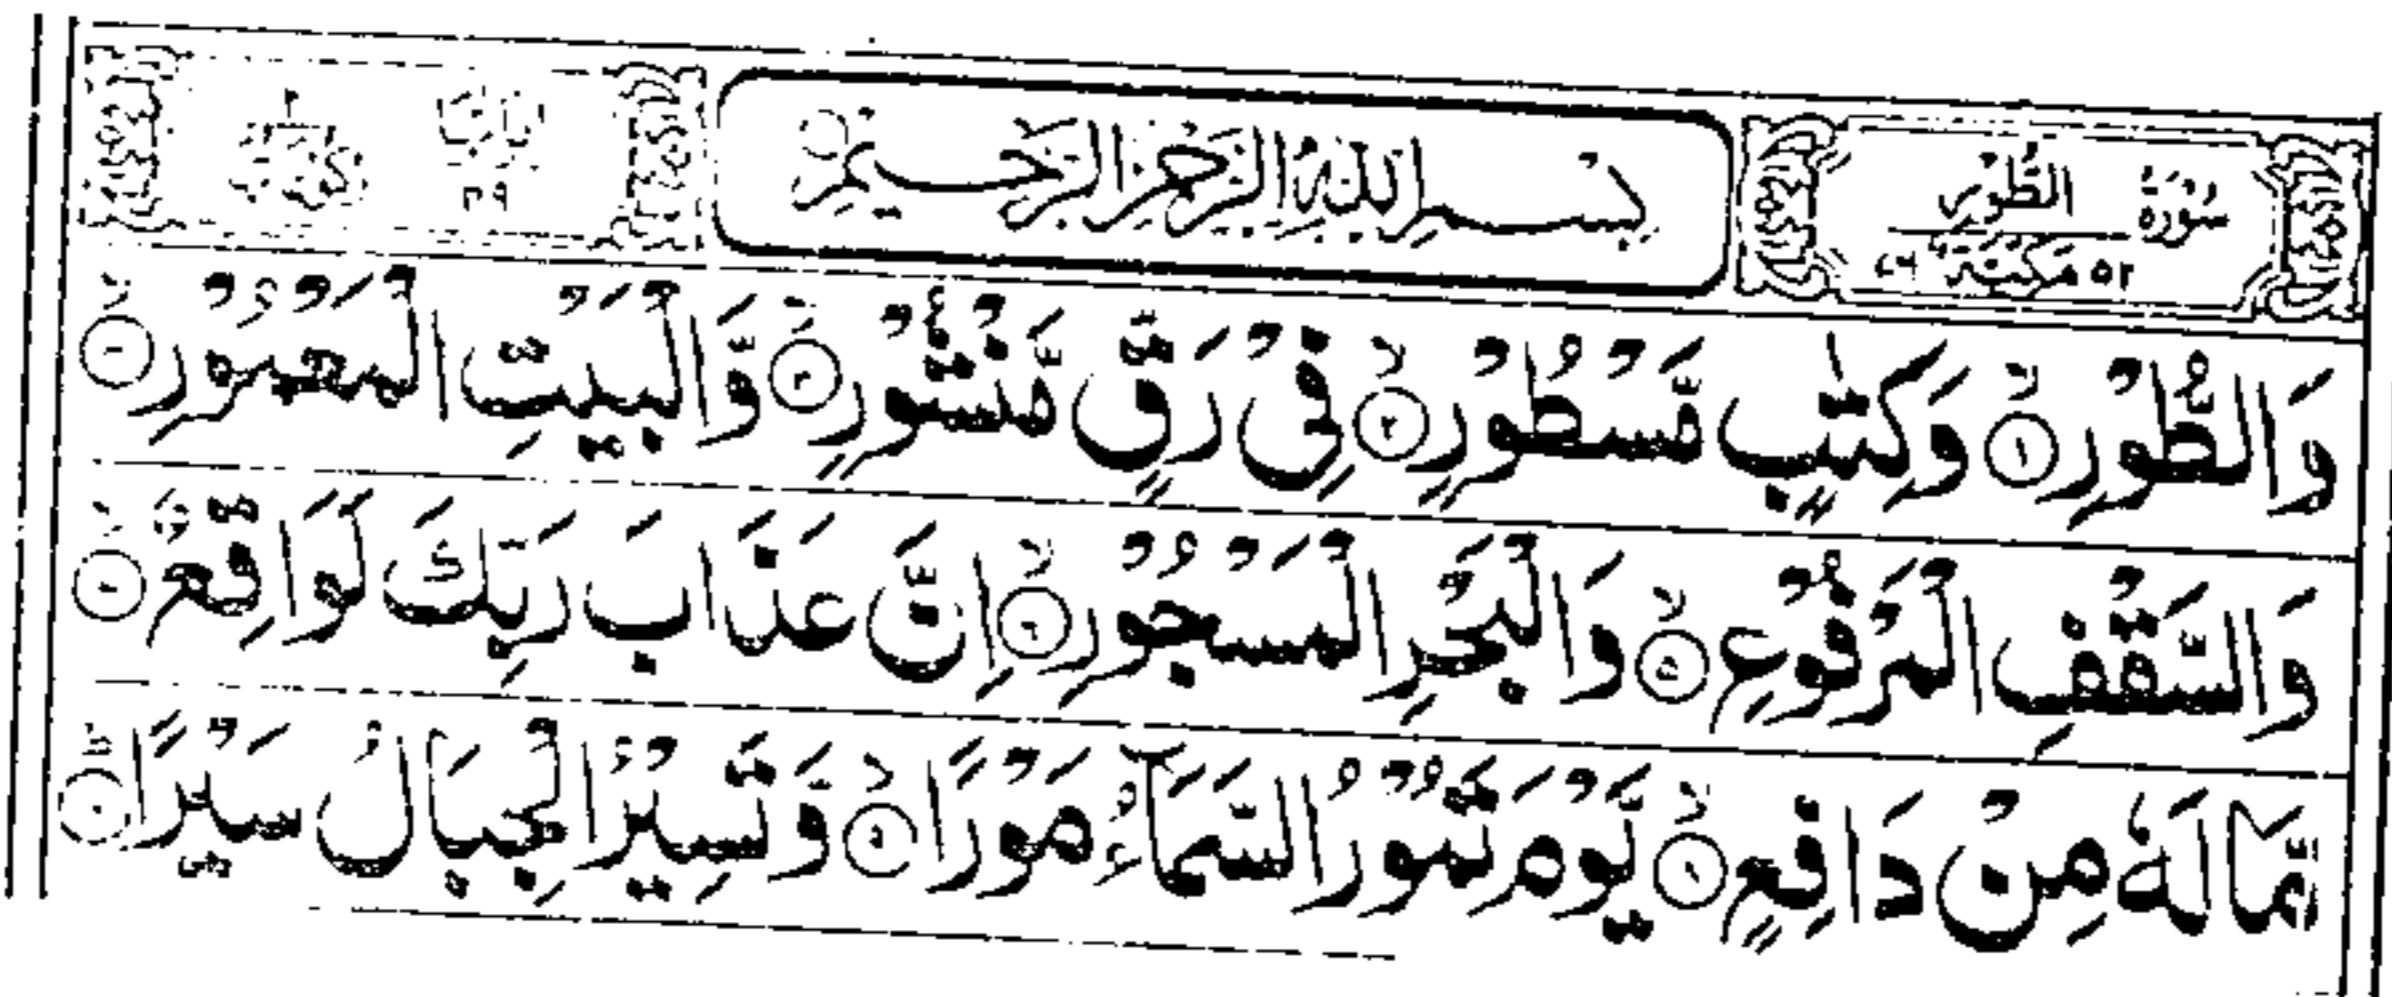 سُوْرَةُ الطُّوْرِ
٥٢ مَكِّيَّةٌ
بِسْمِ اللّٰهِ الرَّحْمٰنِ الرَّحِيْمِ
٤٩
وَالطُّوْرِ ۙ﴿١﴾ وَكِتٰبٍ مَّسْطُوْرٍ ۙ﴿٢﴾ فِىْ رَقٍّ مَّنْشُوْرٍ ۙ﴿٣﴾ وَّالْبَيْتِ الْمَعْمُوْرِ ۙ
وَالسَّقْفِ الْمَرْفُوْعِ ۙ﴿٥﴾ وَالْبَحْرِ الْمَسْجُوْرِ ۙ﴿٦﴾ اِنَّ عَذَابَ رَبِّكَ لَوَاقِعٌ ۙ
مَّا لَهٗ مِنْ دَافِعٍ ۙ﴿٨﴾ يَّوْمَ تَمُوْرُ السَّمَآءُ مَوْرًا ۙ﴿٩﴾ وَّتَسِيْرُ الْجِبَالُ سَيْرًا